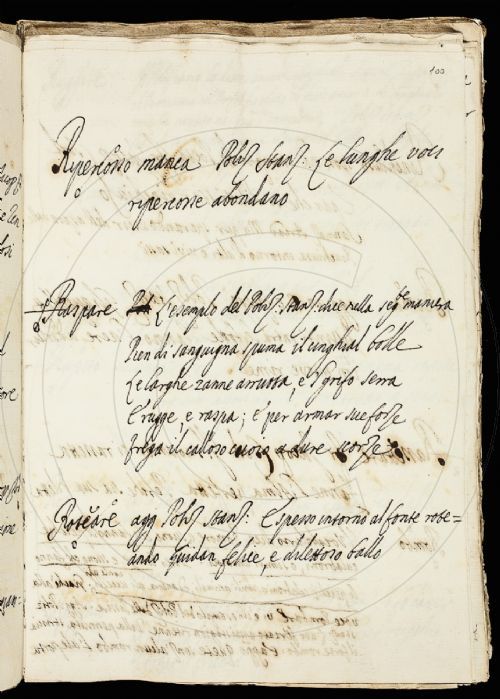 100
Ripercosso manca Poliz. stanz: Le lunghe voci
ripercosse abondano
Raspare L'esempio del Poliz: stanz: dice nella seg.te maniera
Pien di sanguigna spuma il cinghial bolle
Le larghe zanne arruota, e 'l grifo serra
E rugge, e raspa; e per armar sue forze
frega il calloso cuoio a dure scorze
Roteare agg Poliz. stanz: E spesso intorno al fonte rote=
ando guidan felice, e dilettoso ballo